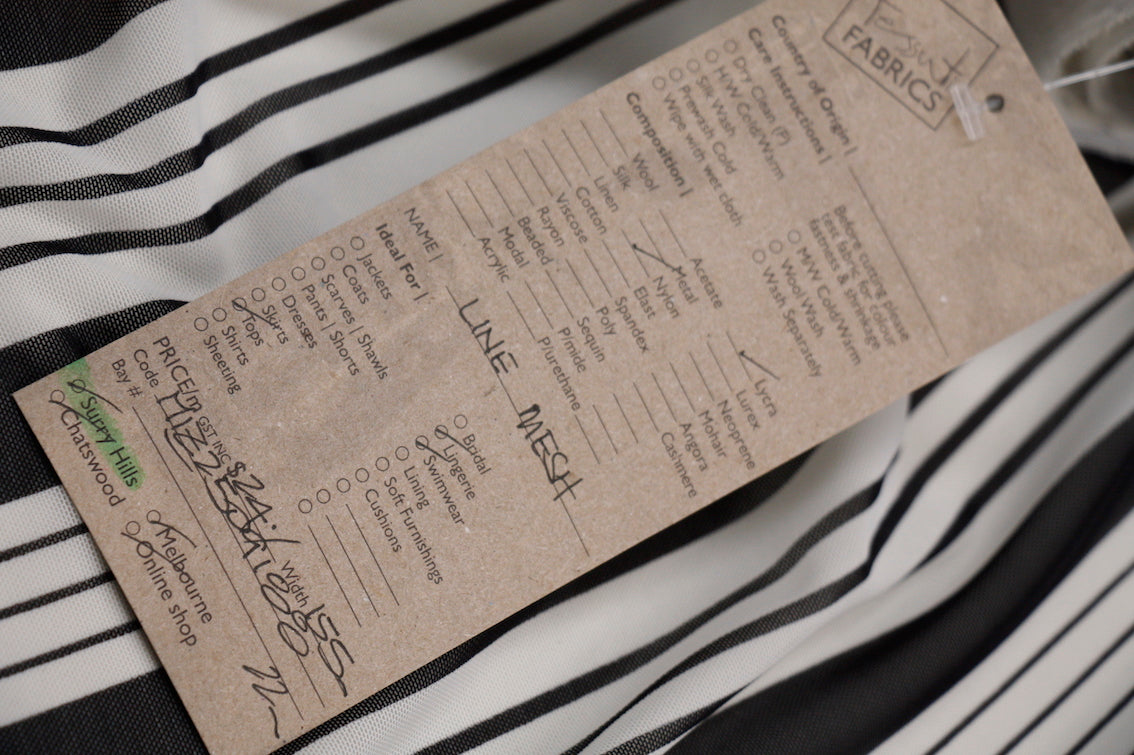 Tessuti
FABRICS
Country of Origin |
Care Instructions |
Dry Clean (P)
H/W Cold/Warm
Silk Wash
Prewash Cold
Wipe with wet cloth
Before cutting please
test fabric for colour
fastness & shrinkage
M/W Cold/Warm
Wool Wash
Wash Separately
Composition |
Wool
Silk
Linen
Cotton
Viscose
Rayon
Beaded
Modal
Acrylic
Acetate
Metal
Nylon
Elast
Spandex
Poly
Sequin
P/mide
P/urethane
Lycra
Lurex
Neoprene
Mohair
Angora
Cashmere
NAME | LINE MESH
Ideal For |
Jackets
Coats
Scarves | Shawls
Pants | Shorts
Dresses
Skirts
Tops
Shirts
Sheeting
Bridal
Lingerie
Swimwear
Lining
Soft Furnishings
Cushions
PRICE/m GST INC $24. Width 155
Code
Bay # 22
Surry Hills
Chatswood
Melbourne
Online shop